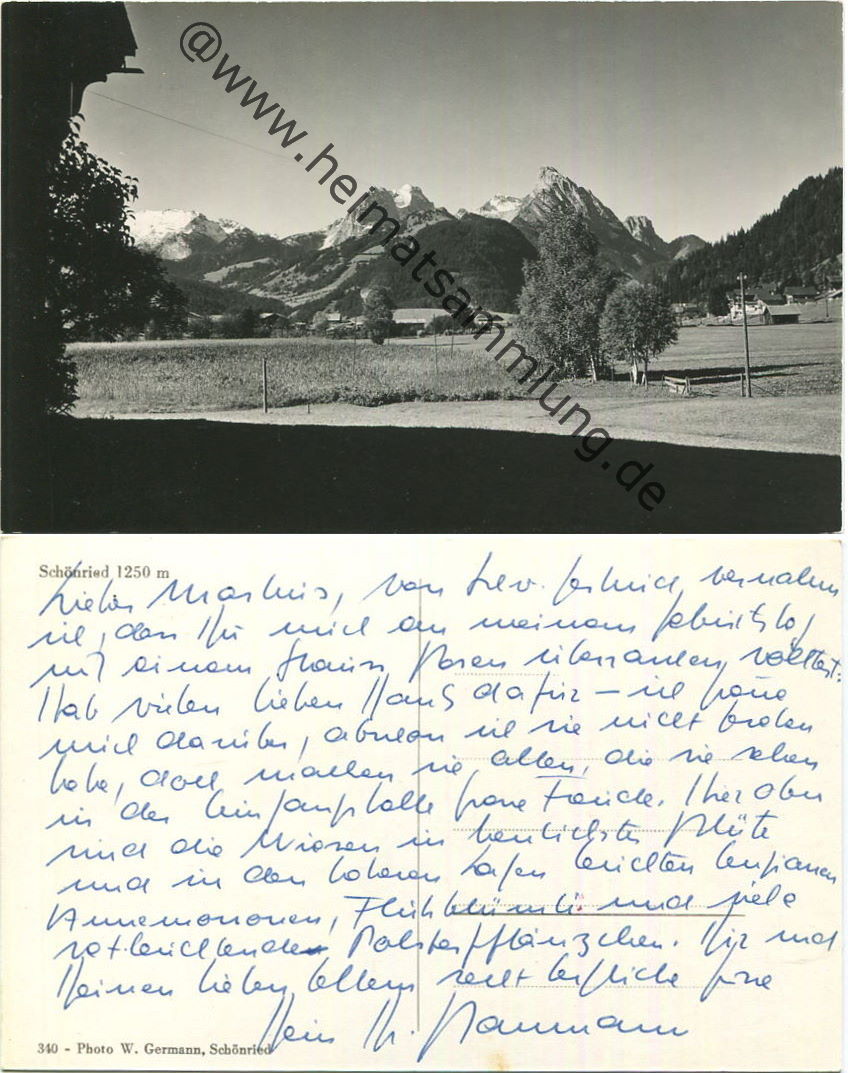 @www.heimatsammlung.de
Schönried 1250 m
Lieber Markus, von vernahm
ich, dass Du mich an meinem Geburtstag
mit einem Strauss Rosen überraschen wolltest.
Hab vielen lieben Dank dafür – ich freue
mich darüber, obwohl ich sie nicht gesehen
habe, doch machen sie allen, die sie sehen
in der grosse Freude. Hier oben
sind die Wiesen in herrlichster Blüte
und in den höheren Lagen leuchten Enzianen
Annemononen, Flühblümli und viele
rotleuchtende Polsterpflänzchen. Dir und
Deinen lieben Eltern recht herzliche Grüsse
Dein H.
340 - Photo W. Germann, Schönried